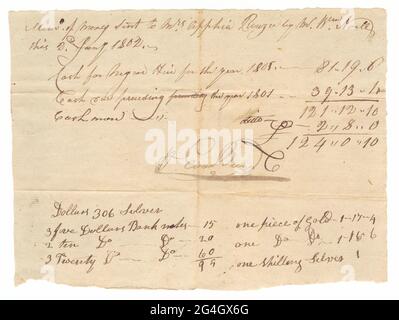 Mem.o of money Sent to Mrs Apphia Rouzee by
this 2.d Jany 1802.
Cash for Negroe Hire for the year 1801 — 81..19..6
Cash due preceding preceding the year 1801 — 39..13..4
121..12..10
Cash more — ditto — 2..8..0
124..0..10
Dollars 306 Silver
3 five Dollars Bank notes - 15 one piece of Gold - 1-17-4
2 ten Do — Do — 20 one Do Do — 1-16-6
3 Twenty Do — Do — 60 one Shilling Silver 1
95
alamy
Image ID: 2G4GX6G
www.alamy.com